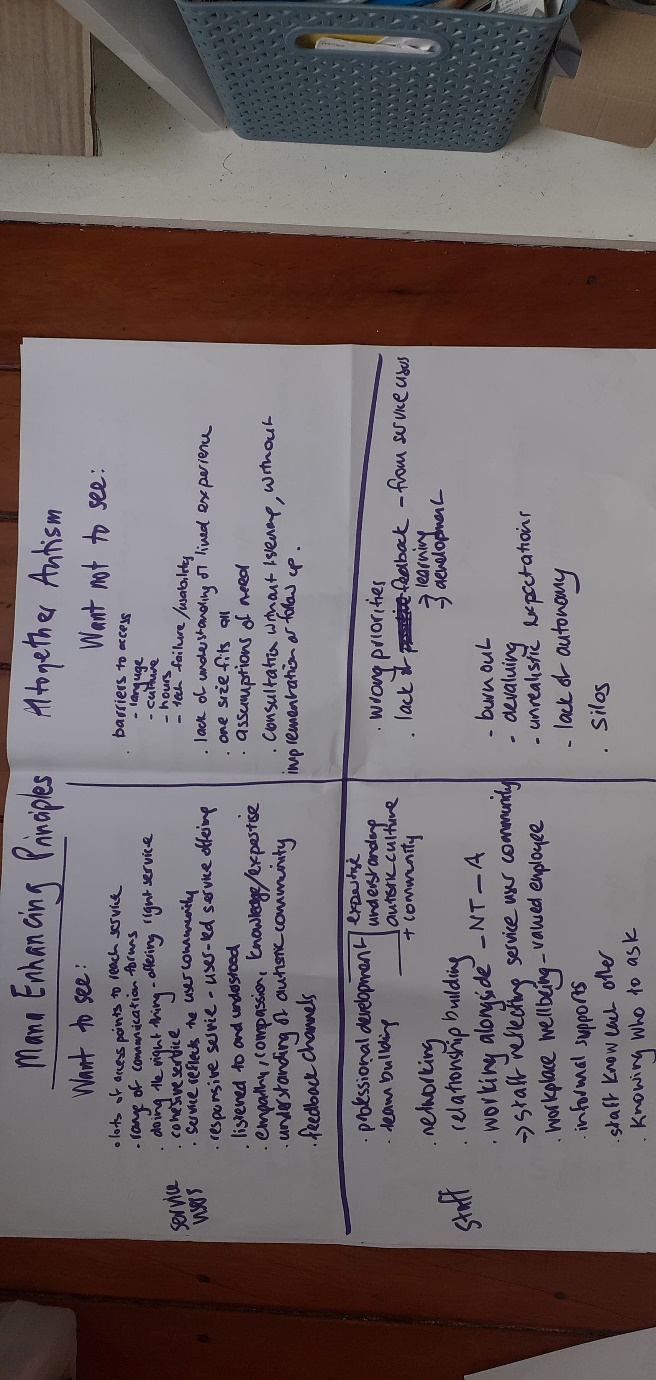 Mana Enhancing Principles Altogether Autism
Want to see:
service
users
• lots of access points to reach service
• range of communication forms
• doing the right thing - offering right service
• cohesive service
• service reflects the user community
• responsive service - user-led service offering
• listened to and understood
• empathy, compassion, knowledge/expertise
• understanding of autistic community
• feedback channels
Want not to see:
• barriers to access
- language
- culture
- hours
- tech failure/usability
• lack of understanding of lived experience
• one size fits all
• assumptions of need
• Consultation without listening, without
implementation or follow up.
Staff
• professional development expertise
understanding
autistic culture
+ community
• team building
• networking
• relationship building
• working alongside - NT - A
→ staff reflecting service user community
• workplace wellbeing - valued employee
• informal supports
• staff know each other
• knowing who to ask
• wrong priorities
• lack of feedback - from service users
learning
→ development
- burn out
- devaluing
- unrealistic expectations
- lack of autonomy
• silos